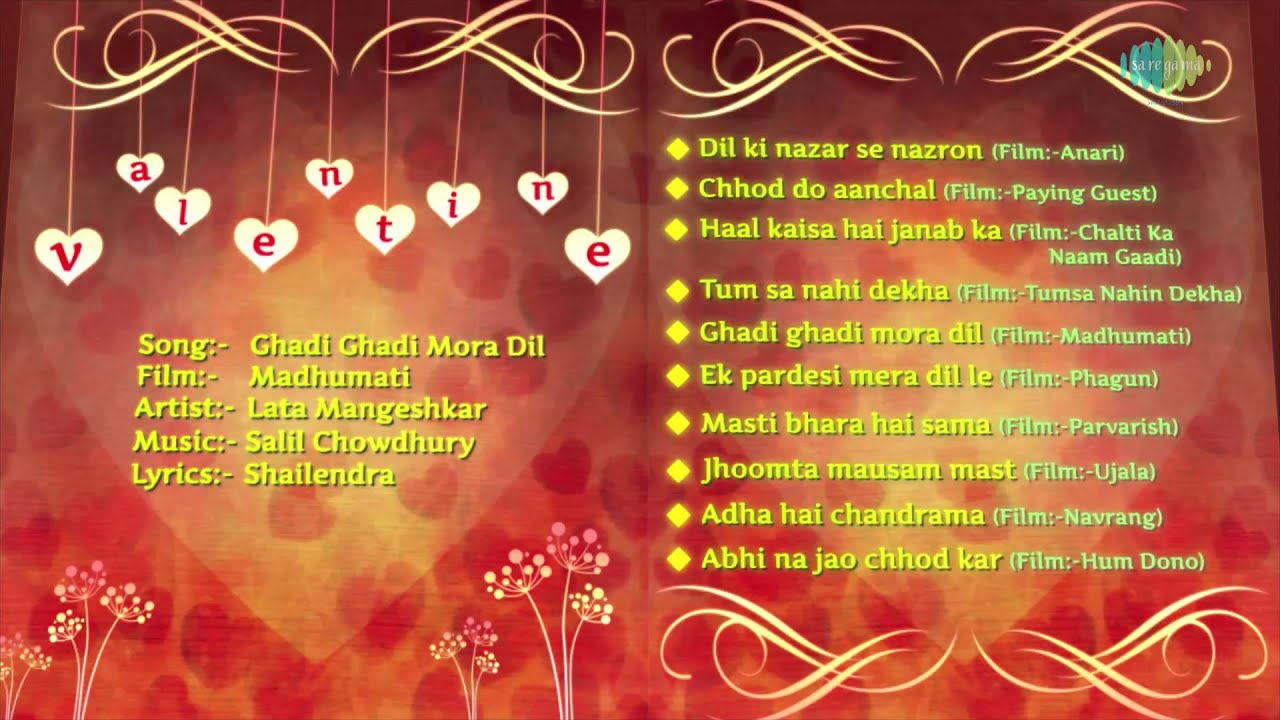 valentine
Song:- Ghadi Ghadi Mora Dil
Film:- Madhumati
Artist:- Lata Mangeshkar
Music:- Salil Chowdhury
Lyrics:- Shailendra
sa re ga ma
Dil ki nazar se nazron (Film:-Anari)
Chhod do aanchal (Film:-Paying Guest)
Haal kaisa hai janab ka (Film:-Chalti Ka
Naam Gaadi)
Tum sa nahi dekha (Film:-Tumsa Nahin Dekha)
Ghadi ghadi mora dil (Film:-Madhumati)
Ek pardesi mera dil le (Film:-Phagun)
Masti bhara hai sama (Film:-Parvarish)
Jhoomta mausam mast (Film:-Ujala)
Adha hai chandrama (Film:-Navrang)
Abhi na jao chhod kar (Film:-Hum Dono)